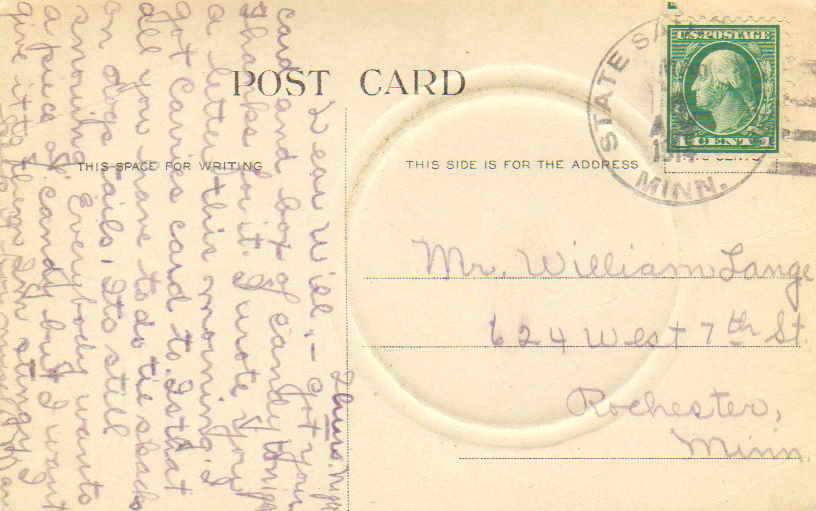 POST CARD
THIS SPACE FOR WRITING
THIS SIDE IS FOR THE ADDRESS
STATE SA
1914
MINN.
U.S. POSTAGE
1 CENT 1
CENTS
Mr. William Lange
624 West 7th St.
Rochester,
Minn.
Thurs. night
Dear Will:- Got your
card and box of candy
thanks for it. I wrote you
a letter this morning. I
got Carri's card to. Is that
all you have to do tie
on dogs tails. Its still
snowing. Everybody wants
a piece of candy but I want
give it to them I'm stingy